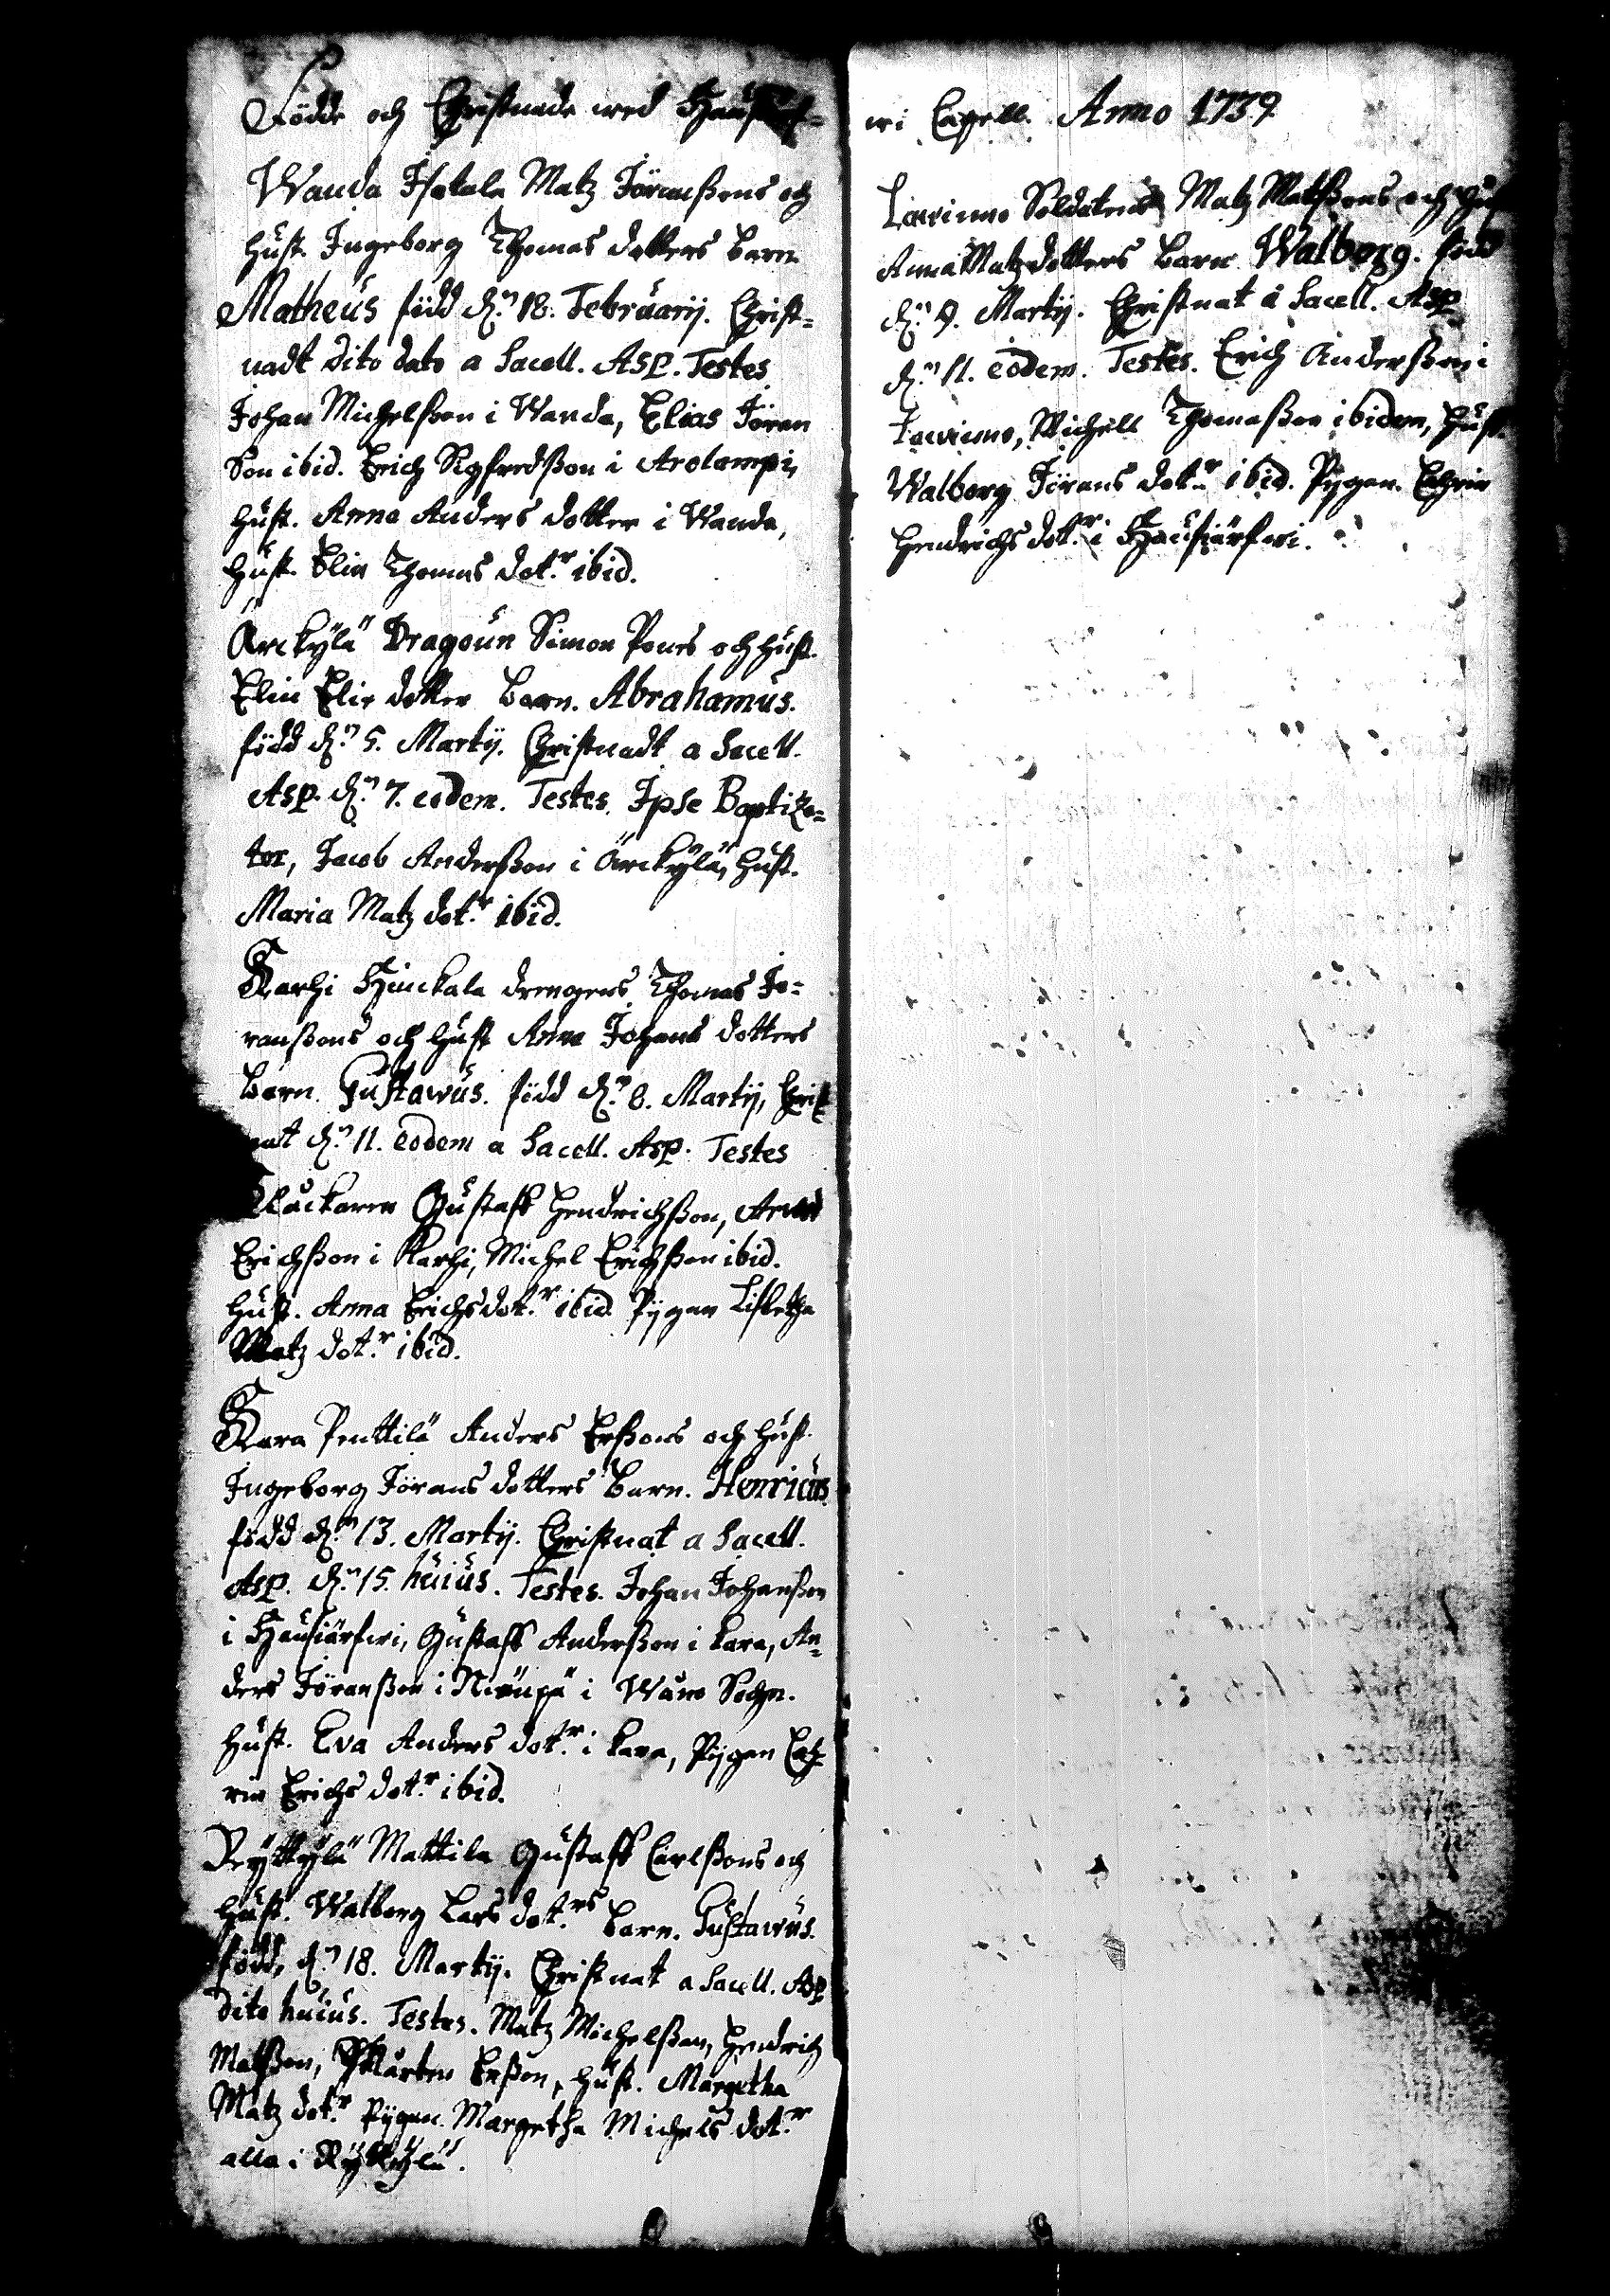 Födde och Christnade wed Hausier-
Wanda Isotalo Matz Jöranßons och
hust. Ingeborg Thomas dotters barn
Matheus född d:n 18. Februarij. Christ-
nadt dito dato a Sacell. Asp. Testes
Johan Michelßon i Wanda, Elias Jöran
Son ibid. Erich Sigfredßon i Arolampi,
hust. Anna Anders dotter i Wanda,
hust. Elin Thomas dot:r ibid.
Ärckylä Dragoun Simon Pours och hust.
Elin Elie dotter barn. Abrahamus.
född d:n 5. Martij. Christnadt a Sacell.
Asp. d:n 7. eodem. Testes. Ipse Baptiza-
tor, Jacob Anderßon i Ärckylä, hust.
Maria Matz dot:r ibid.
Karhi Hinckala drengens Thomas Jo-
ranßons och hust Anna Johans dotters
barn. Gustawus. född d:n 8. Martij, Christ
nat d:n 11. eodem a Sacell. Asp. Testes
Klåckaren Gustaff Hendrichßon,
Erichßon i Karhi, Michel Erichßon ibid.
hust. Anna Erichsdot:r ibid. Pygan Lisbetha
Matz dot:r ibid.
Kara Penttilä Anders Erßons och hust.
Ingeborg Jörans dotters barn. Henricus
född d:n 13. Martij. Christnat a Sacell.
Asp. d:n 15. huius. Testes. Johan Johanßon
i Hausiärfwi, Gustaff Anderßon i Kara, An-
ders Jöranßon i i Wåno Sochn.
hust. Eva Anders dot:r i Kara, Pygan Cath-
rin Erichs dot:r ibid.
Ryttylä Mattila Gustaff Carlßons och
hust. Walborg Lars dot:rs barn. Gustawus.
född, d:n 18. Martij. Christnat a Sacell. Asp
dito huius. Testes. Matz Michelßon, Hendrich
Matßon, Mårten Erßon, hust. Margetha
Matz dot:r Pygan. Margetha Michels dot:r
alla i Ryttylä.
wi Capell. Anno 1739
Lavinno Soldatens Matz Matßons och hust
Anna Matzdotters barn Walborg. född
d:n 9. Martij. Christnat a Sacell. Asp
d:n 11. eodem. Testes. Erich Anderßon i
Lavinno, Michell Thomaßon ibidem, hust.
Walborg Jörans dot:r ibid. Pygan. Cathrin
Hendrichs dot:r i Hausiärfwi.